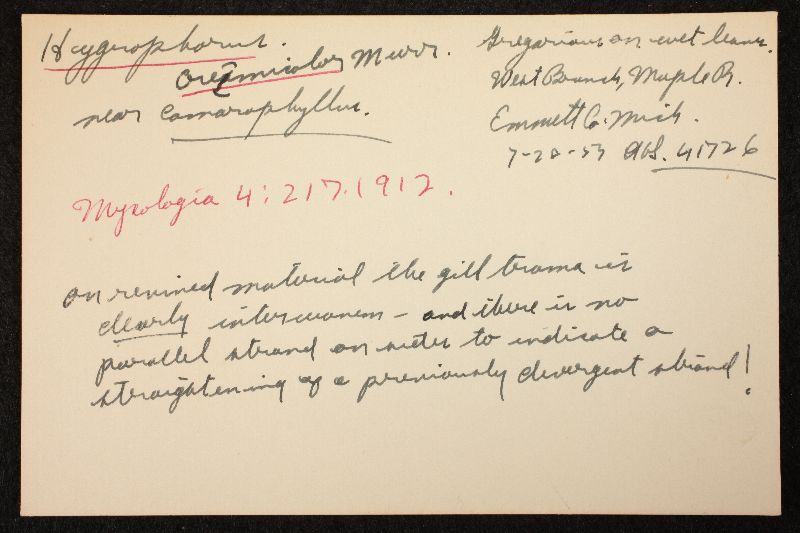 Hygrophorus.
Murr.
near Camarophyllus.
Gregarious on wet leaves.
West Branch, Maple R.
Emmett Co. Mich.
7-28-53 AHS. 41726
Mycologia 4:217.1912.
on revived material the gill trama is
clearly interwoven - and there is no
parallel strand on outer to indicate a
straightening of a previously divergent strand!